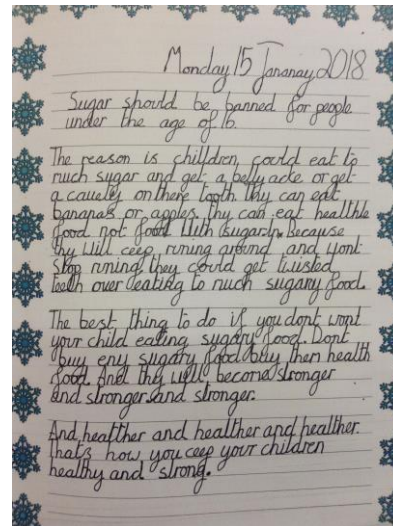 Monday 15 Jananay 2018
Sugar should be banned for people
under the age of 16.
The reason is chilldren, could eat to
much sugar and get a belly acke or get
a cauety on there tooth. Thy can eat
bananas or apples. Thy can eat healthle
food not food with sugar in. Because
thy will ceep runing around and wont
stop runing they could get twisted
teeth over eating to much sugary food.
The best thing to do if you dont wont
your child eating sugary food. Dont
buy eny sugary food buy then health
food. And they will become stronger
and stronger and stronger.
And healther and healther and healther.
thats how you ceep your children
healthy and strong.